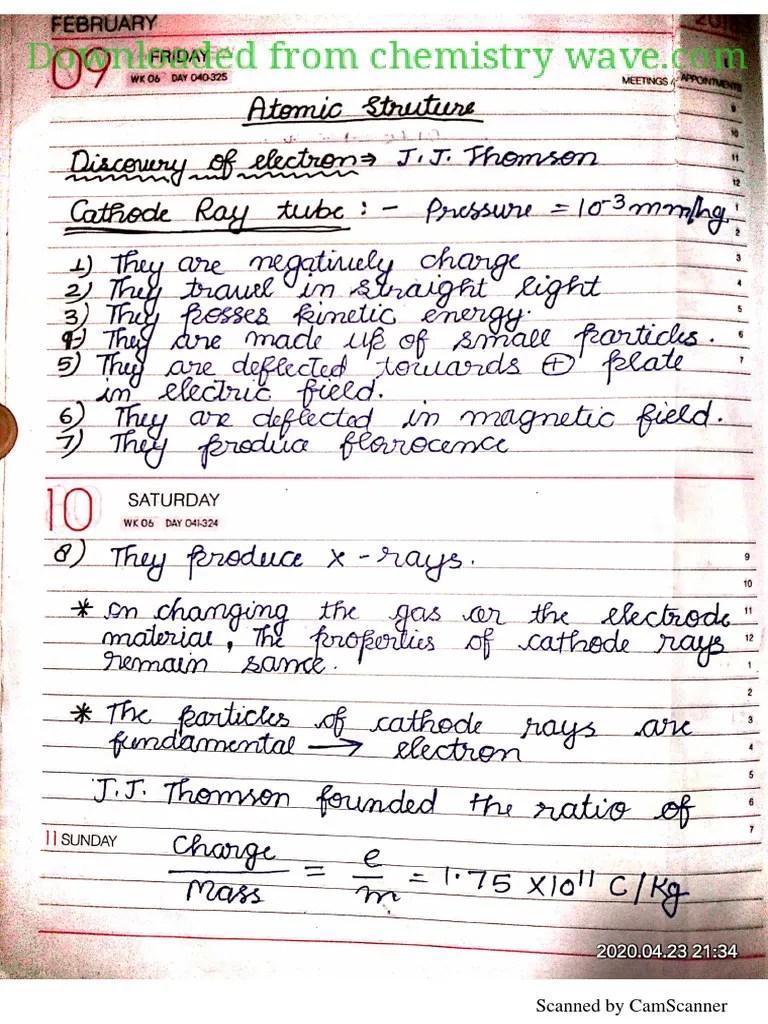 FEBRUARY 2018
Downloaded from chemistry wave.com
09 FRIDAY
WK 06 DAY 040-325
MEETINGS / APPOINTMENTS
Atomic Struture
Discovery of electron ⇒ J.J. Thomson
Cathode Ray tube :- Pressure = 10⁻³ mm/hg
1) They are negatively charge
2) They travel in straight light
3) They posses kinetic energy.
4) They are made up of small particles.
5) They are deflected towards ⊕ plate
in electric field.
6) They are deflected in magnetic field.
7) They produce florocence
10 SATURDAY
WK 06 DAY 041-324
8) They produce x-rays.
* on changing the gas or the electrode
material, the properties of cathode rays
remain same.
* The particles of cathode rays are
fundamental → electron
J.J. Thomson founded the ratio of
11 SUNDAY
Charge/Mass = e/m = 1.75 X10¹¹ C/Kg
2020.04.23 21:34
Scanned by CamScanner